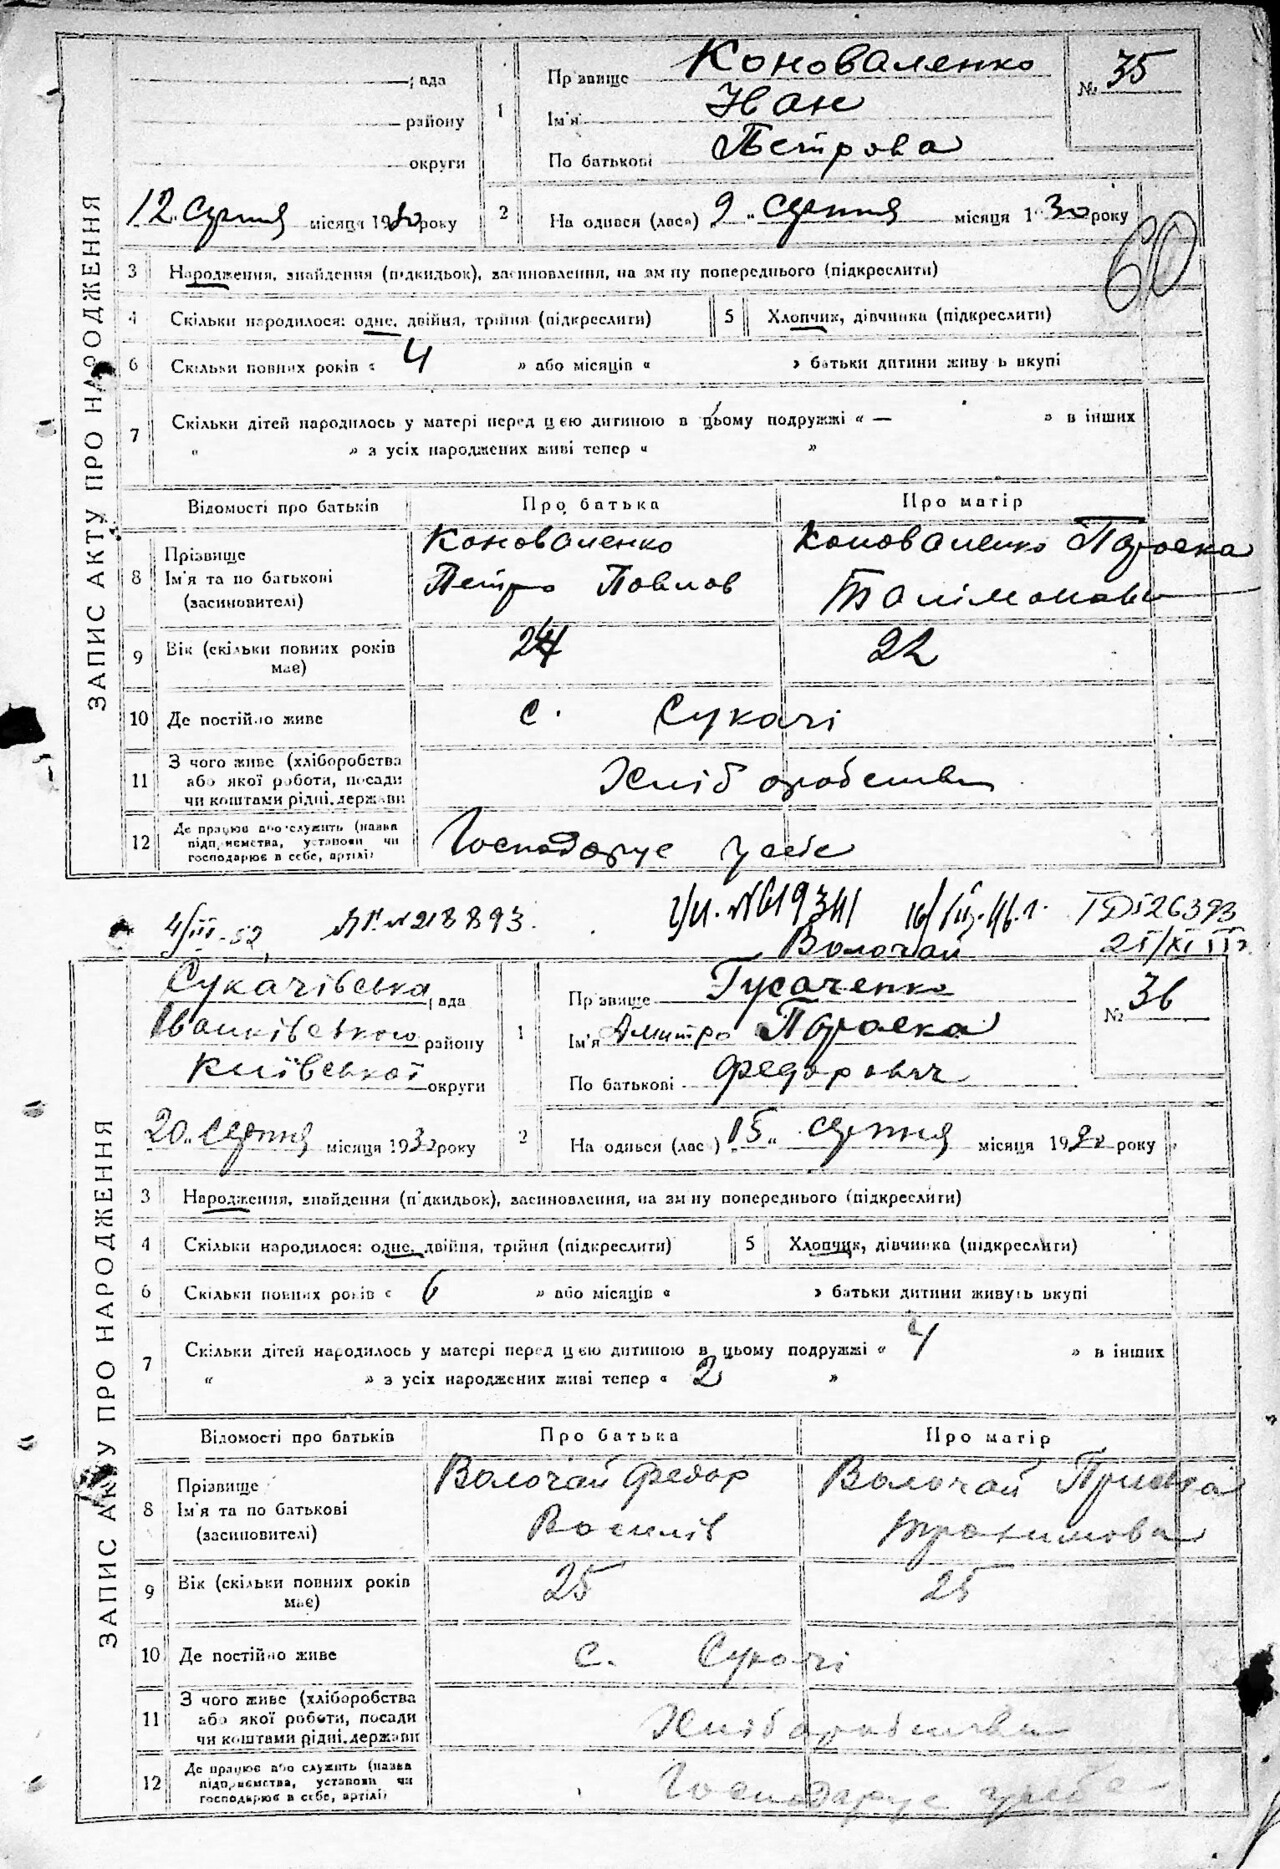 ЗАПИС АКТУ ПРО НАРОДЖЕННЯ
рада
району
округи
12 серпня місяця 1930 року
1 Прізвище Коноваленко
Ім'я Іван
По батькові Петрова
№ 35
2 На одився (лась) 9 серпня місяця 1930 року
60
3 Народження, знайдення (підкидьок), засиновлення, на зм ну попереднього (підкреслити)
4 Скільки народилося: одне, двійня, трійня (підкреслити)
5 Хлопчик, дівчинка (підкреслити)
6 Скільки повних років « 4 » або місяців « » батьки дитини живу ь вкупі
7 Скільки дітей народилось у матері перед цією дитиною в цьому подружжі « — » в інших
« » з усіх народжених живі тепер « »
Відомості про батьків Про батька Про матір
8 Прізвище
Ім'я та по батькові
(засиновителі)
Коноваленко
Петро Павлов
Коноваленко Параска
9 Вік (скільки повних років має) 24 22
10 Де постійно живе с. Сукачі
11 З чого живе (хліборобства
або якої роботи, посади
чи коштами рідні, держави
Хліборобства
12 Де працює або служить (назва
підприємства, установи чи
господарює в себе, артілі)
Господарує у себе
4/III-52 № 218893.
№ 619341
Волочай
ЗАПИС АКТУ ПРО НАРОДЖЕННЯ
Сукачівська рада
Іванківського району
Київської округи
20 серпня місяця 1930 року
1 Прізвище Гусаченко
Ім'я Дмитро Параска
По батькові Федорович
№ 36
2 На одився (лас ) 15 серпня місяця 19 року
3 Народження, знайдення (підкидьок), засиновлення, на зм ну попереднього (підкреслити)
4 Скільки народилося: одне, двійня, трійня (підкреслити)
5 Хлопчик, дівчинка (підкреслити)
6 Скільки повних років « 6 » або місяців « » батьки дитини живуть вкупі
7 Скільки дітей народилось у матері перед цією дитиною в цьому подружжі « 4 » в інших
« » з усіх народжених живі тепер « 2 »
Відомості про батьків Про батька Про матір
8 Прізвище
Ім'я та по батькові
(засиновителі)
Волочай Федор
Василів
Волочай
Трохимова
9 Вік (скільки повних років має) 25 25
10 Де постійно живе с. Сукачі
11 З чого живе (хліборобства
або якої роботи, посади
чи коштами рідні, держави
Хліборобства
12 Де працює або служить (назва
підприємства, установи чи
господарює в себе, артілі)
Господарує у себе